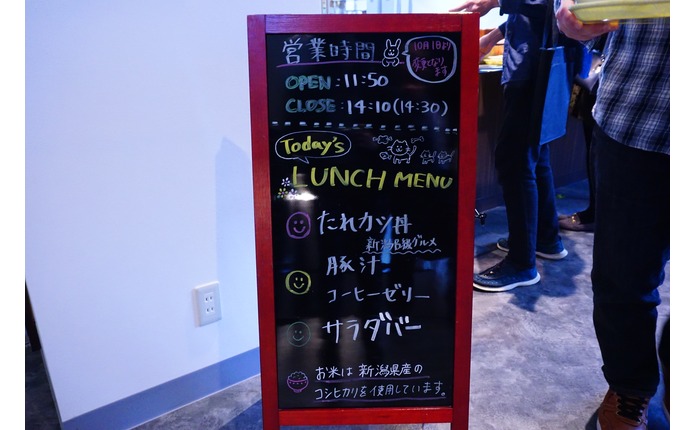 営業時間
10月1日より
変更になります
OPEN : 11:50
CLOSE : 14:10(14:30)
Today's
LUNCH MENU
たれカツ丼
新潟B級グルメ
豚汁
コーヒーゼリー
サラダバー
お米は新潟県産の
コシヒカリを使用しています。